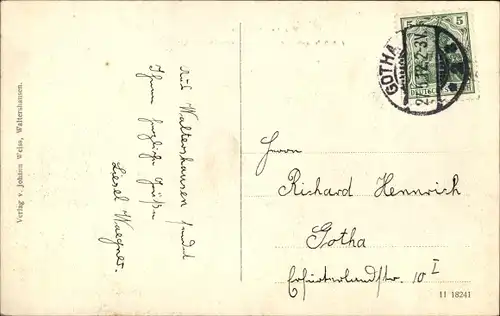 Verlag v. Johann Weiss, Waltershausen.
Aus Waltershausen sendet
Ihnen herzliche Grüße
Liesel Waegner.
5 5
GOTHA
2-3N.
Herrn
Richard Hennrich
Gotha
Erfurterlandstr. 10 I
11 18241